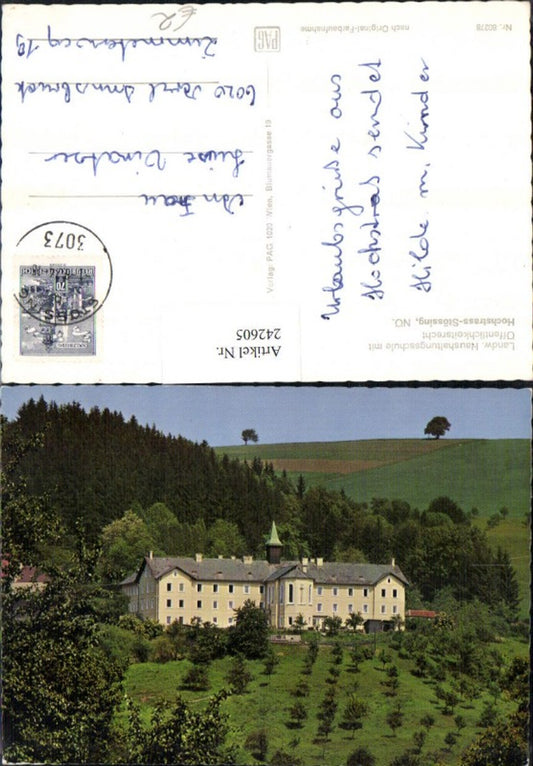 Landw. Haushaltungsschule mit
Öffentlichkeitsrecht
Hochstrass-Stössing, NÖ.
Urlaubsgrüße aus
Hochstraß sendet
Hilde m. Kinder
Nr. 80278
nach Original-Farbaufnahme
Verlag: PAG 1020 Wien, Blumauergasse 19
PAG
3073
70
An Frau
Luise Vinatzer
6020 Innsbruck
Zimmeterweg 19
€2
Artikel Nr.
242605